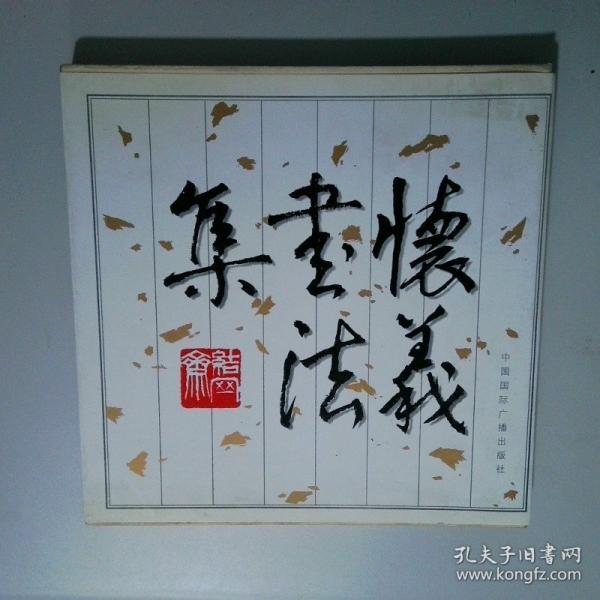 懷義
書法
集
中国国际广播出版社
孔夫子旧书网
www.kongfz.com